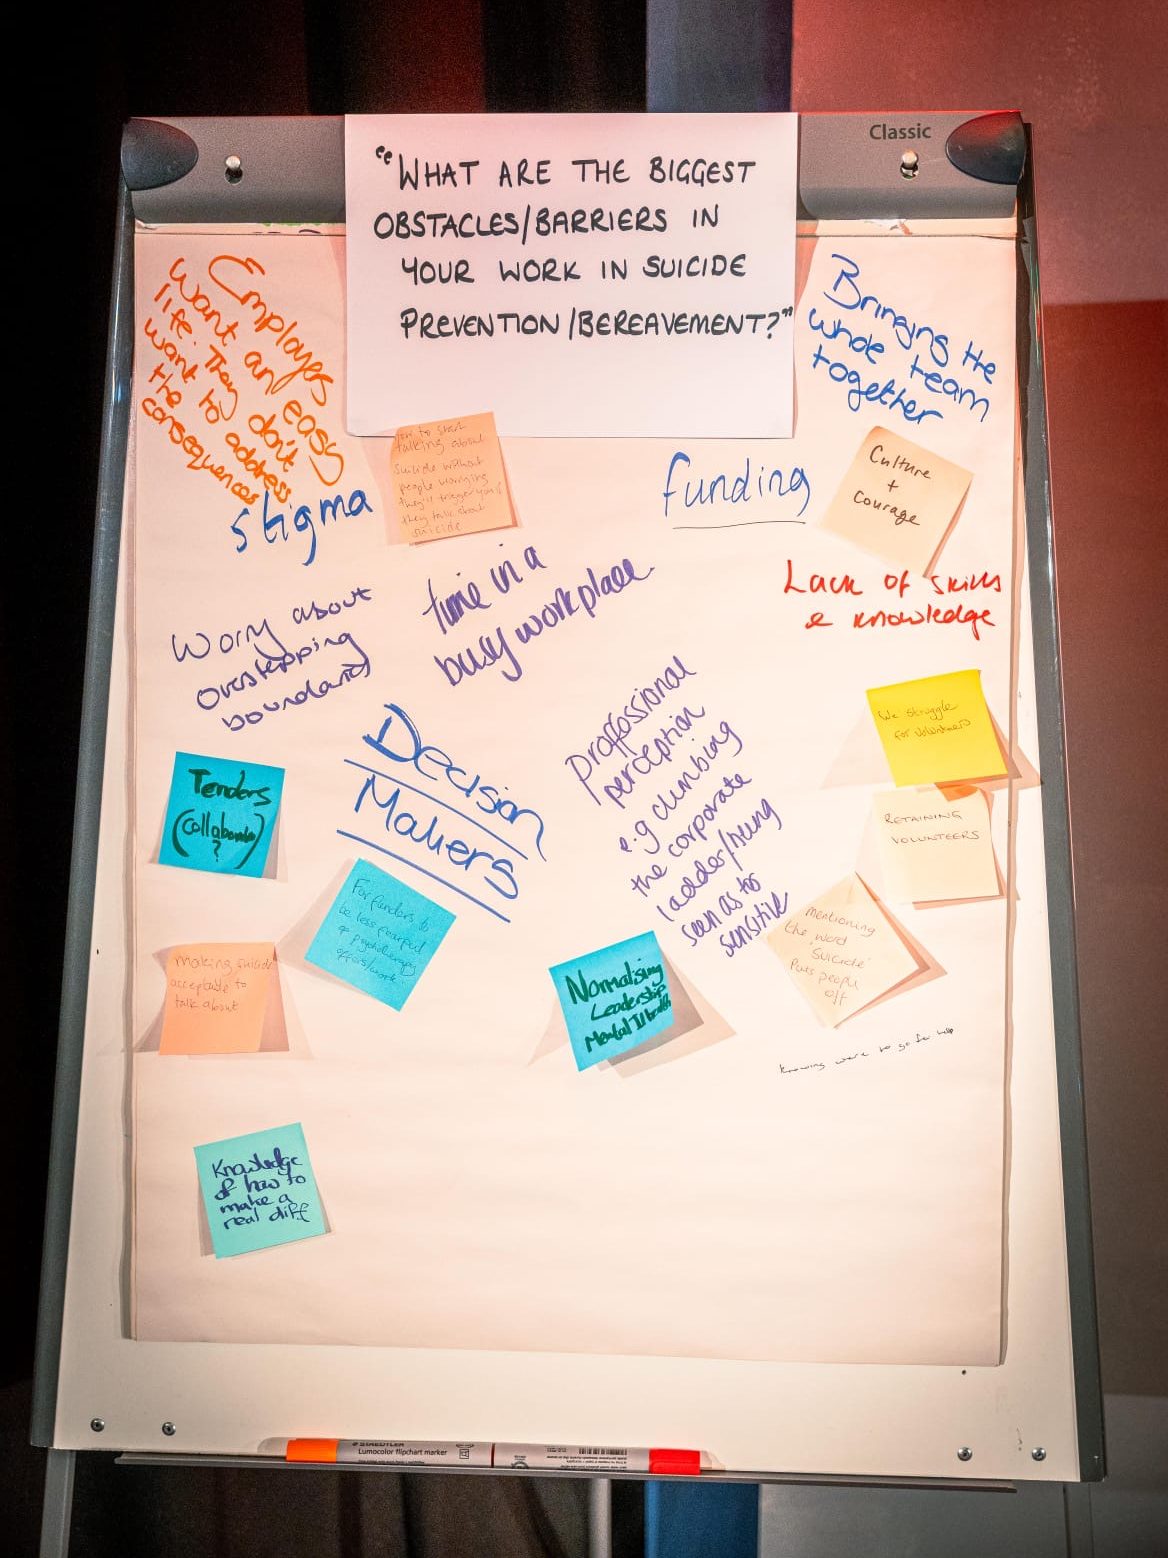 Classic
"WHAT ARE THE BIGGEST
OBSTACLES/BARRIERS IN
YOUR WORK IN SUICIDE
PREVENTION/BEREAVEMENT?"
Employers
want an easy
life. They don't
want to address
the
consequences
Stigma
How to start
talking about
suicide without
people worrying
they'll trigger you if
they talk about
suicide
Funding
Bringing the
whole team
together
Culture
+
Courage
Lack of skills
& knowledge
time in a
busy workplace.
Worry about
overstepping
boundaries
Decision
Makers
Proffessional
perception
e.g climbing
the corporate
ladder/being
seen as to
sensitive
We struggle
for volunteers
RETAINING
VOLUNTEERS
Tenders
(collaboration)
?
For funders to
be less fearful
of psychotherapy
offers/work
making suicide
acceptable to
talk about
Normalising
Leadership
Mental Ill health
mentioning
the word
'Suicide'
puts people
off
knowing where to go for help
Knowledge
of how to
make a
real diff
STAEDTLER
Lumocolor flipchart marker